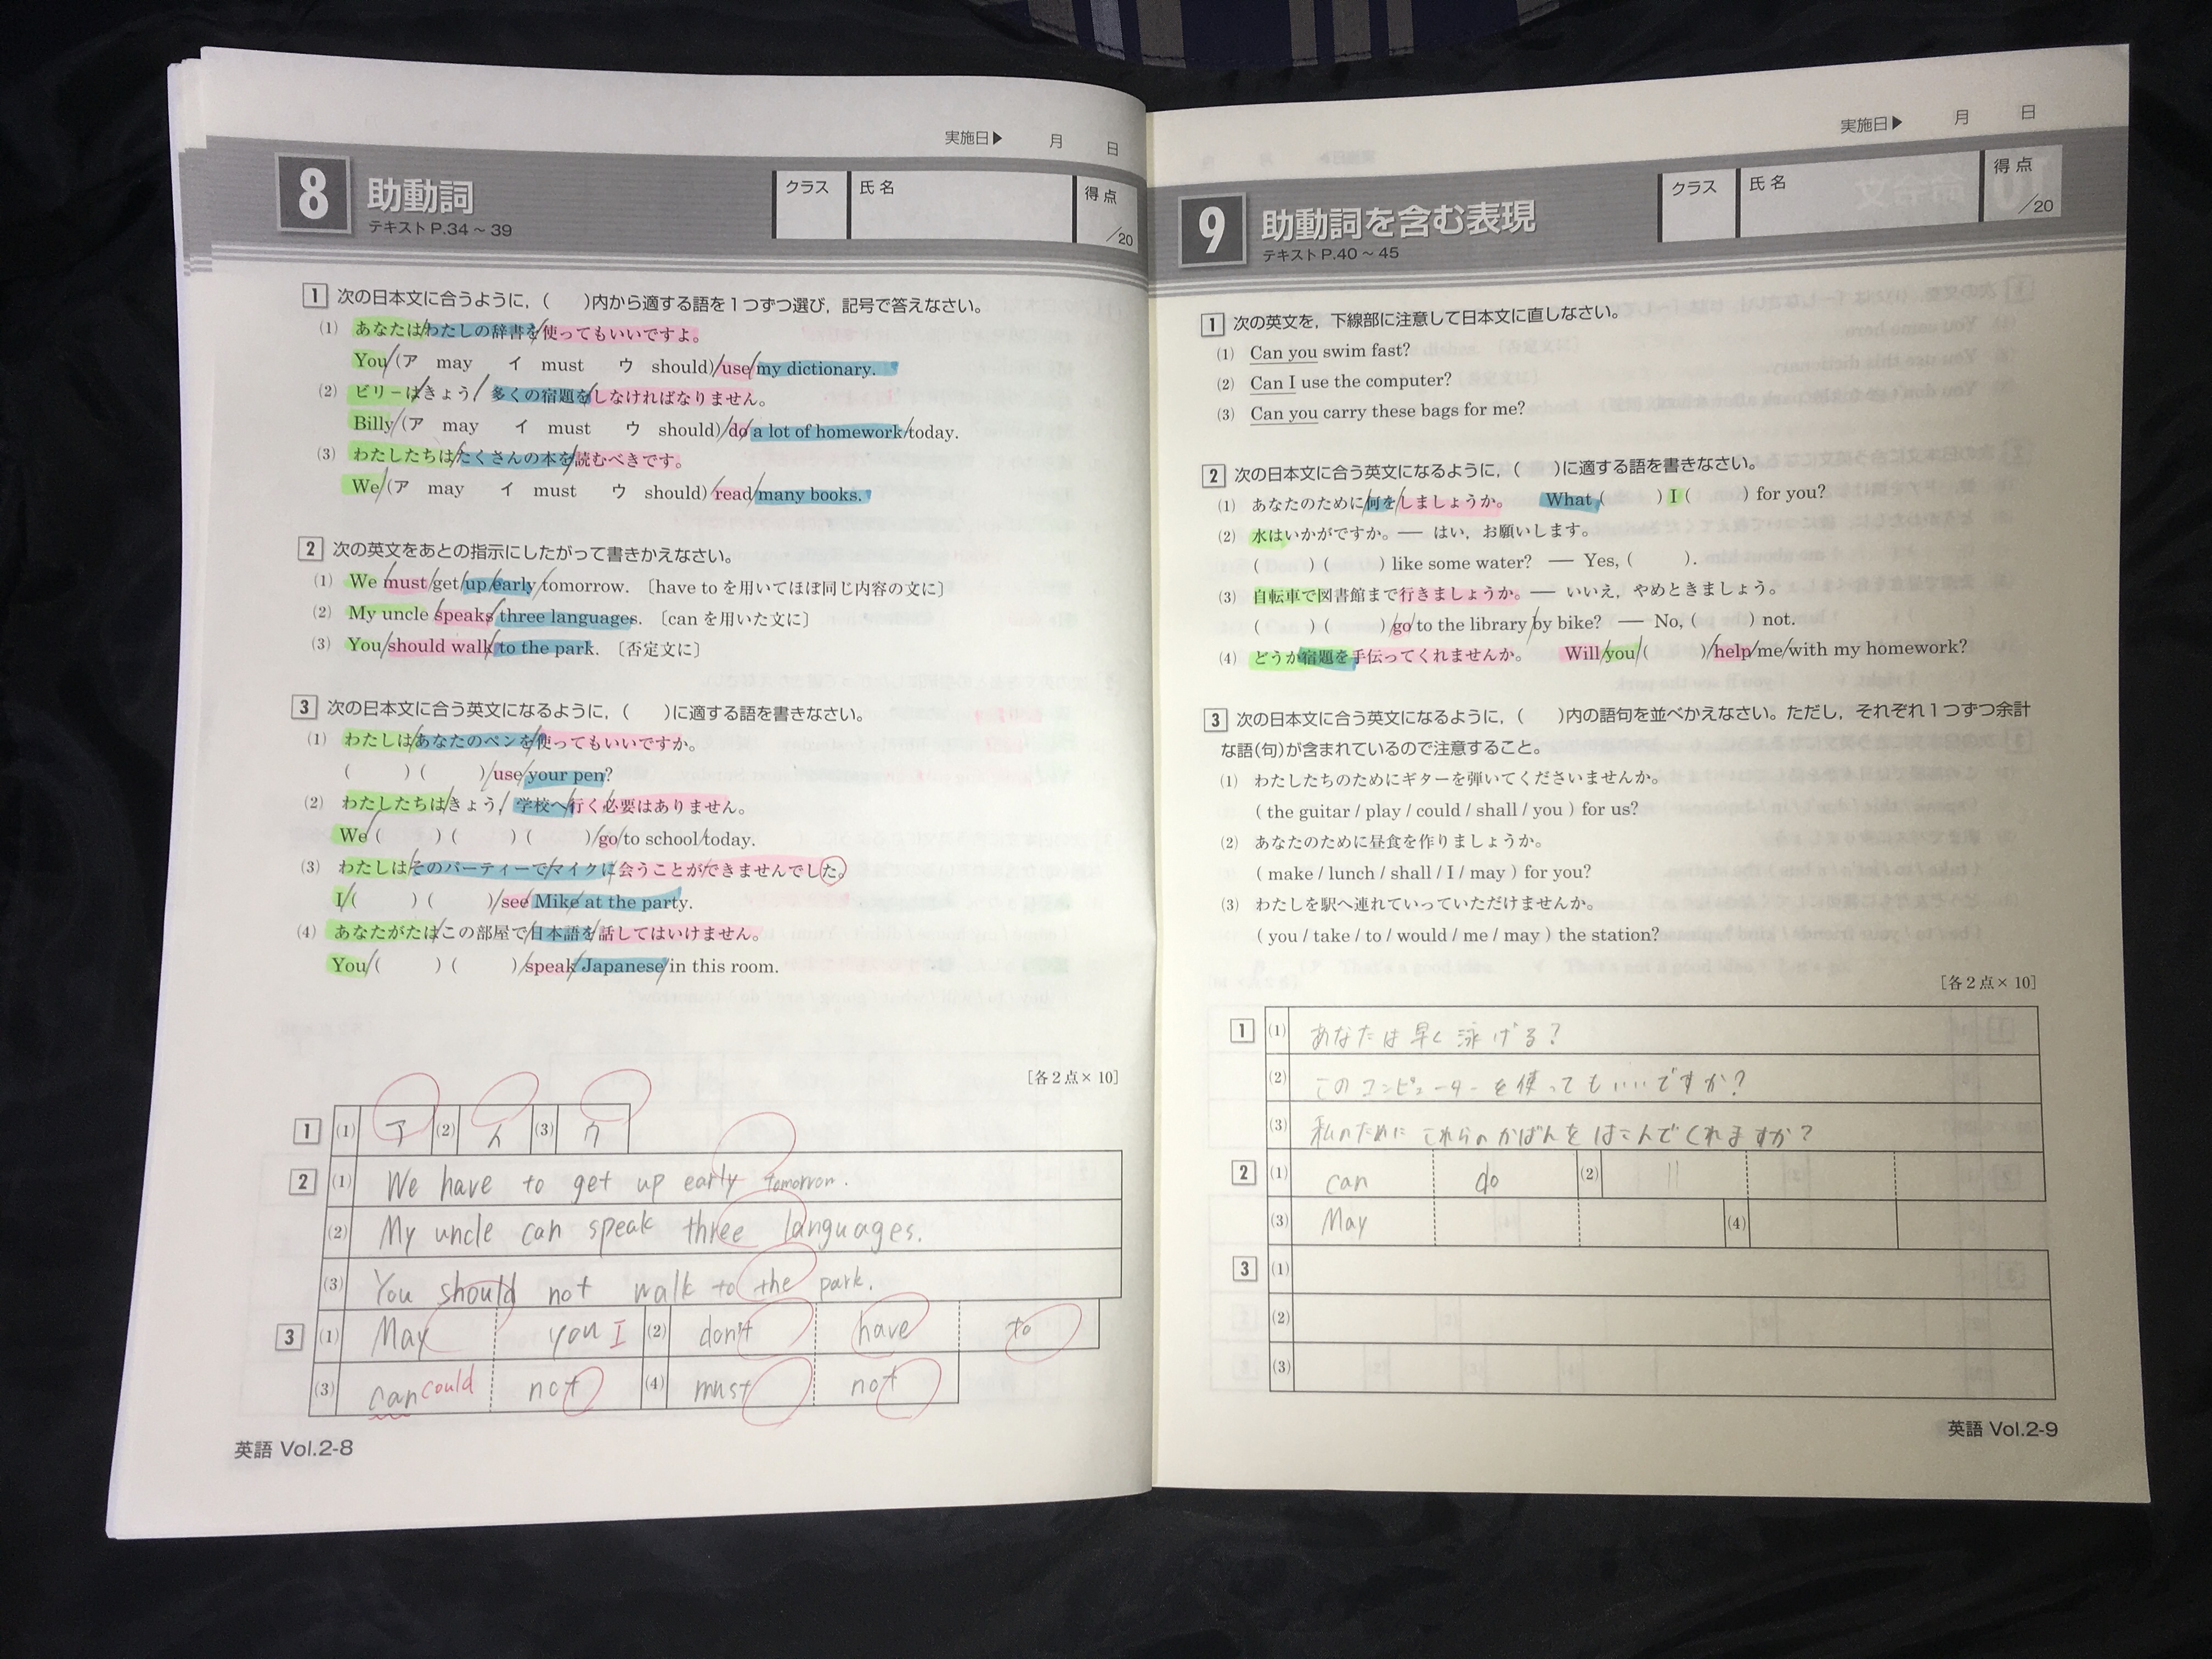 実施日▶ 月 日
8 助動詞
テキストP.34～39
クラス 氏名 得点 /20
1 次の日本文に合うように，( )内から適する語を1つずつ選び，記号で答えなさい。
(1) あなたは/わたしの辞書を/使ってもいいですよ。
You/(ア may イ must ウ should)/use/my dictionary.
(2) ビリーは/きょう/多くの宿題を/しなければなりません。
Billy/(ア may イ must ウ should)/do/a lot of homework/today.
(3) わたしたちは/たくさんの本を/読むべきです。
We/(ア may イ must ウ should)/read/many books.
2 次の英文をあとの指示にしたがって書きかえなさい。
(1) We/must/get/up/early/tomorrow. 〔have to を用いてほぼ同じ内容の文に〕
(2) My uncle/speaks/three languages. 〔can を用いた文に〕
(3) You/should walk/to the park. 〔否定文に〕
3 次の日本文に合う英文になるように，( )に適する語を書きなさい。
(1) わたしは/あなたのペンを/使ってもいいですか。
( ) ( )/use/your pen?
(2) わたしたちは/きょう/学校へ/行く/必要はありません。
We/( ) ( ) ( )/go/to school/today.
(3) わたしは/そのパーティーで/マイクに/会うことが/できませんでした。
I/( ) ( )/see/Mike/at the party.
(4) あなたがたは/この部屋で/日本語を/話してはいけません。
You/( ) ( )/speak/Japanese/in this room.
［各2点×10］
1 (1) ア (2) イ (3) ウ
2 (1) We have to get up early tomorrow.
(2) My uncle can speak three languages.
(3) You should not walk to the park.
3 (1) May you I (2) don't have to
(3) can could not (4) must not
英語 Vol.2-8
実施日▶ 月 日
9 助動詞を含む表現
テキストP.40～45
クラス 氏名 得点 /20
1 次の英文を，下線部に注意して日本文に直しなさい。
(1) Can you swim fast?
(2) Can I use the computer?
(3) Can you carry these bags for me?
2 次の日本文に合う英文になるように，( )に適する語を書きなさい。
(1) あなたのために/何を/しましょうか。 What/( ) I ( ) for you?
(2) 水はいかがですか。― はい，お願いします。
( ) ( ) like some water? ― Yes, ( ).
(3) 自転車で図書館まで行きましょうか。― いいえ，やめときましょう。
( ) ( )/go/to the library/by bike? ― No, ( ) not.
(4) どうか宿題を手伝ってくれませんか。 Will/you/( )/help/me/with my homework?
3 次の日本文に合う英文になるように，( )内の語句を並べかえなさい。ただし，それぞれ1つずつ余計
な語(句)が含まれているので注意すること。
(1) わたしたちのためにギターを弾いてくださいませんか。
( the guitar / play / could / shall / you ) for us?
(2) あなたのために昼食を作りましょうか。
( make / lunch / shall / I / may ) for you?
(3) わたしを駅へ連れていっていただけませんか。
( you / take / to / would / me / may ) the station?
［各2点×10］
1 (1) あなたは早く泳げる?
(2) このコンピューターを使ってもいいですか?
(3) 私のためにこれらのかばんをはこんでくれますか?
2 (1) can do (2)
(3) May (4)
3 (1)
(2)
(3)
英語 Vol.2-9